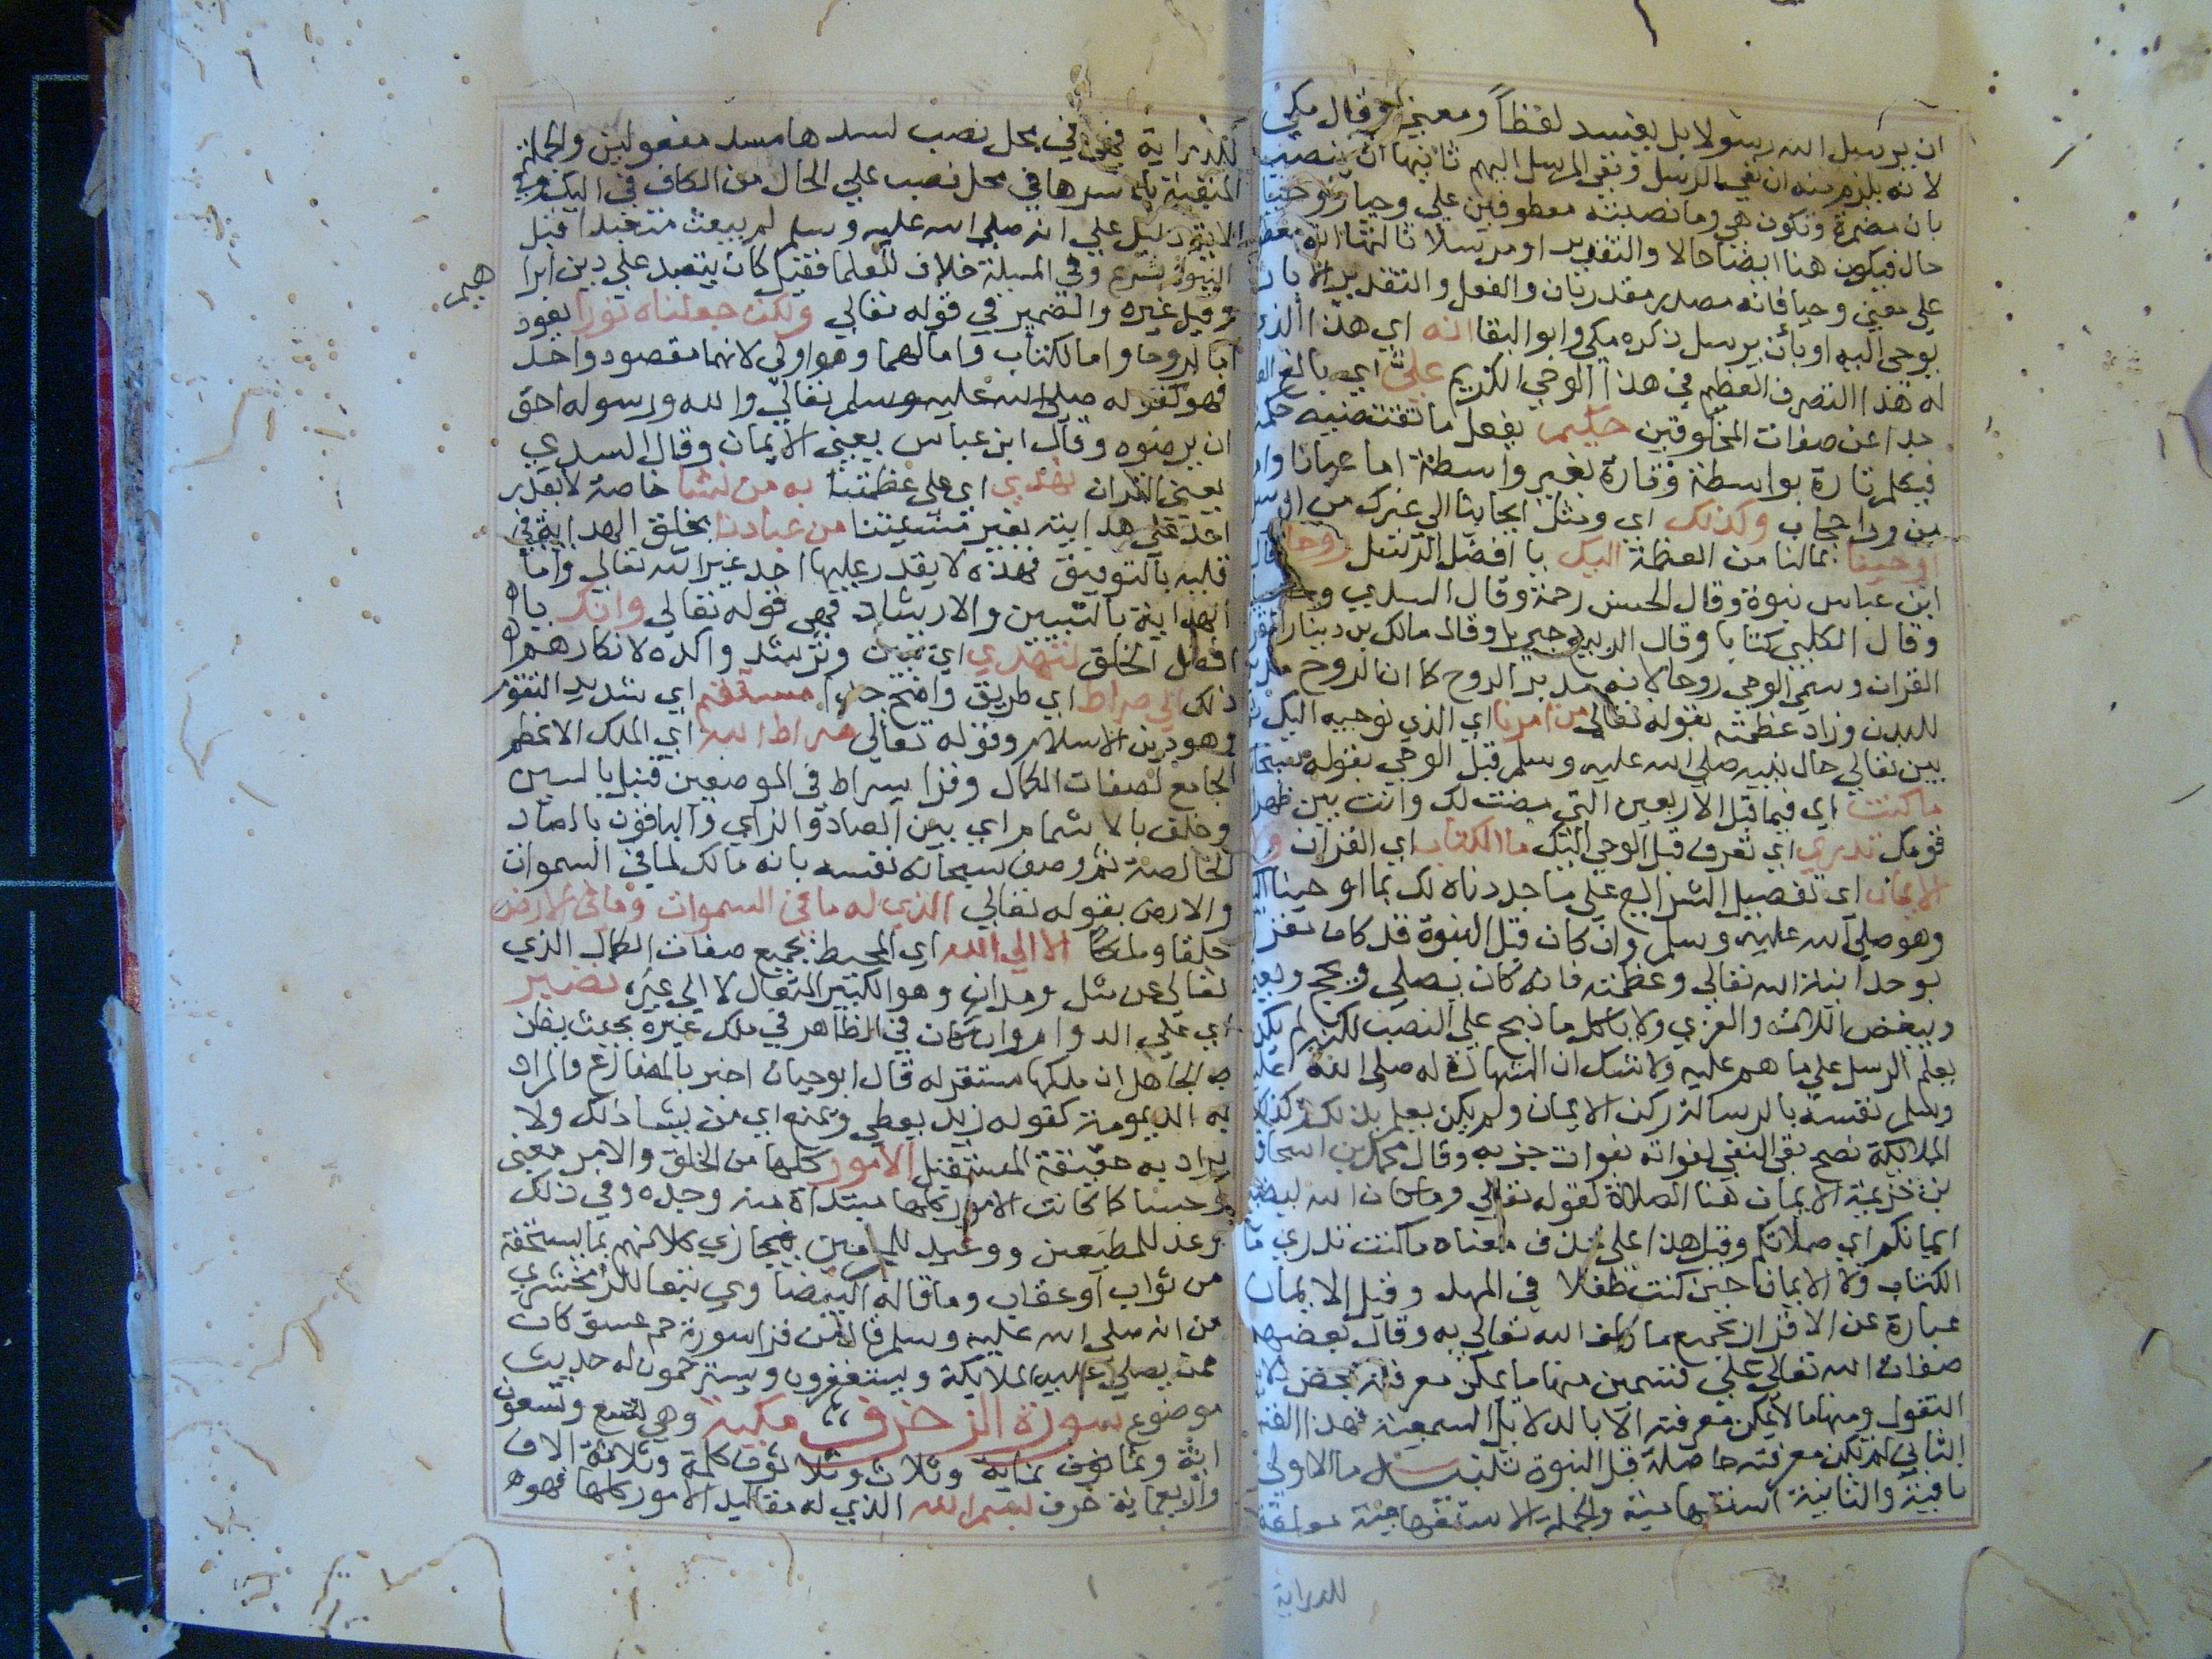 ان يرسل الله رسولا بل يفسد لفظاً ومعني وقال مكي
لانه يلزم منه ان نفي الرسل ونفي المرسل اليهم ثانيها ان ينصب
بان مضمرة وتكون هي وما نصبته معطوفين علي وحيا ووحيا
حال فيكون هنا ايضا حالا والتقدير او مرسلا ثالثها انه عطف
علي معني وحيا فانه مصدر مقدر بان والفعل والتقدير الا بان
يوحي اليه او بأن يرسل ذكره مكي وابو البقا انه اي هذا الذي
له هذا التصرف العظيم في هذا الوحي الكريم علي اي بالغ العلو
جدا عن صفات المخلوقين حكيم يفعل ما تقتضيه حكمته
فيكلم تارة بواسطة وتارة بغير واسطة اما عيانا واما
من ورا حجاب وكذلك اي ومثل ايحاينا الي غيرك من الرسل
اوحينا بمالنا من العظمة اليك يا افضل الرسل روحا قال
ابن عباس نبوة وقال الحسن رحمة وقال السدي وحيا
وقال الكلبي كتابا وقال الربيع جبريل وقال مالك بن دينار
القران وسمي الوحي روحا لانه مدبر الروح كما ان الروح مدبر
للبدن وزاد عظمته بقوله تعالي من امرنا اي الذي نوحيه اليك ثم
بين تعالي حال نبيه صلي الله عليه وسلم قبل الوحي بقوله سبحانه
ما كنت اي فيما قبل الاربعين التي مضت لك وانت بين ظهراني
قومك تدري اي تعرف قبل الوحي اليك ما الكتاب اي القران ولا
الايمان اي تفصيل الشرايع علي ما جددناه لك بما اوحينا اليك
وهو صلي الله عليه وسلم وان كان قبل النبوة قد كان مقرا
بوحدانية الله تعالي وعظمته فانه كان يصلي ويحج ويعتمر
ويبغض اللات والعزي ولا ياكل ما ذبح علي النصب لكنه لم يكن
يعلم الرسل علي ما هم عليه ولا شك ان الشهادة له صلي الله عليه
وسلم نفسه بالرسالة ركن الايمان ولم يكن يعلم بذلك وكذلك
الملايكة فصح نفي النفي لفواته بفوات جزيه وقال محمد بن اسحاق
بن خزيمة الايمان هنا الصلاة لقوله تعالي وما كان الله ليضيع
ايمانكم اي صلاتكم وقيل هذا علي حذف معناه ما كنت تدري ما
الكتاب ولا الايمان حين كنت طفلا في المهد وقيل الايمان
عبارة عن الاقرار بجميع ما كلف الله تعالي به وقال بعضهم
صفات الله تعالي علي قسمين منها ما يمكن معرفته بمحض دلايل
العقول ومنها ما لا يمكن معرفته الا بالدلايل السمعية فهذا القسم
الثاني لم تكن معرفته حاصلة قبل النبوة تنبيه ما الاولي
نافية والثانية استفهامية والجملة الاستفهامية معلقة
للدراية
للدراية فهي في محل نصب لسدها مسد مفعولين والجملة
المنفية باسرها في محل نصب علي الحال من الكاف في اليك وفي
الاية دليل علي انه صلي الله عليه وسلم لم يبعث متعبدا قبل
النبوة بشرع وفي المسيلة خلاف للعلما فقيل كان يتعبد علي دين ابرا
هيم
وقيل غيره والضمير في قوله تعالي ولكن جعلناه نورا يعود
اما لروحا واما لكتاب واما لهما وهو اولي لانهما مقصود واحد
فهو كقوله صلي الله عليه وسلم تعالي والله ورسوله احق
ان يرضوه وقال ابن عباس يعني الايمان وقال السدي
يعني القران نهدي اي علي عظمتنا به من نشا خاصة لا يقدر
احد علي هدايته بغير مشيتنا من عبادنا بخلق الهداية في
قلبه بالتوفيق فهذه لا يقدر عليها احد غير الله تعالي واما
الهداية بالتبيين والارشاد فهي قوله تعالي وانك يا
افضل الخلق لتهدي اي تبين وترشد واكده لانكارهم
ذلك الي صراط اي طريق واضح جدا مستقيم اي شديد التقوم
وهو دين الاسلام وقوله تعالي صراط الله اي الملك الاعظم
الجامع لصفات الكمال وقرا سراط في الموضعين قنبل بالسين
وخلف بالاشمام اي بين الصاد والزاي والباقون بالصاد
الخالصة ثم وصف سبحانه نفسه بانه مالك لما في السموات
والارض بقوله تعالي الذي له ما في السموات وما في الارض
خلقا وملكا الا الي الله اي المحيط بجميع صفات الكمال الذي
تعالي عن مثل ومدان وهو الكبير المتعال لا الي غيره تصير
اي علي الدوام وان كان في الظاهر في ملك غيره بحيث يظن
الجاهل ان ملكها مستقر له قال ابو حيان اخبر بالمضارع والمراد
به الديمومة كقوله زيد يعطي ويمنع اي من يشا ذلك ولا
يراد به حقيقة المستقبل الامور كلها من الخلق والامر معني
وحسا كما كانت الامور كلها مبتداة منه وحده وفي ذلك
وعد للمطيعين ووعيد للمجرمين فيجازي كلا منهم بما يستحقه
من ثواب او عقاب وما قاله البيضاوي تبعا للزمخشري
من انه صلي الله عليه وسلم قال من قرا سورة حم عسق كان
ممن يصلي عليه الملايكة ويستغفرون ويسترحمون له حديث
موضوع سورة الزخرف مكية وهي تسع وتسعون
اية وثمانون ثماية وثلاث وثلاثون كلمة وثلاثة الاف
واربعماية حرف بسم الله الذي له مقاليد الامور كلها فهو